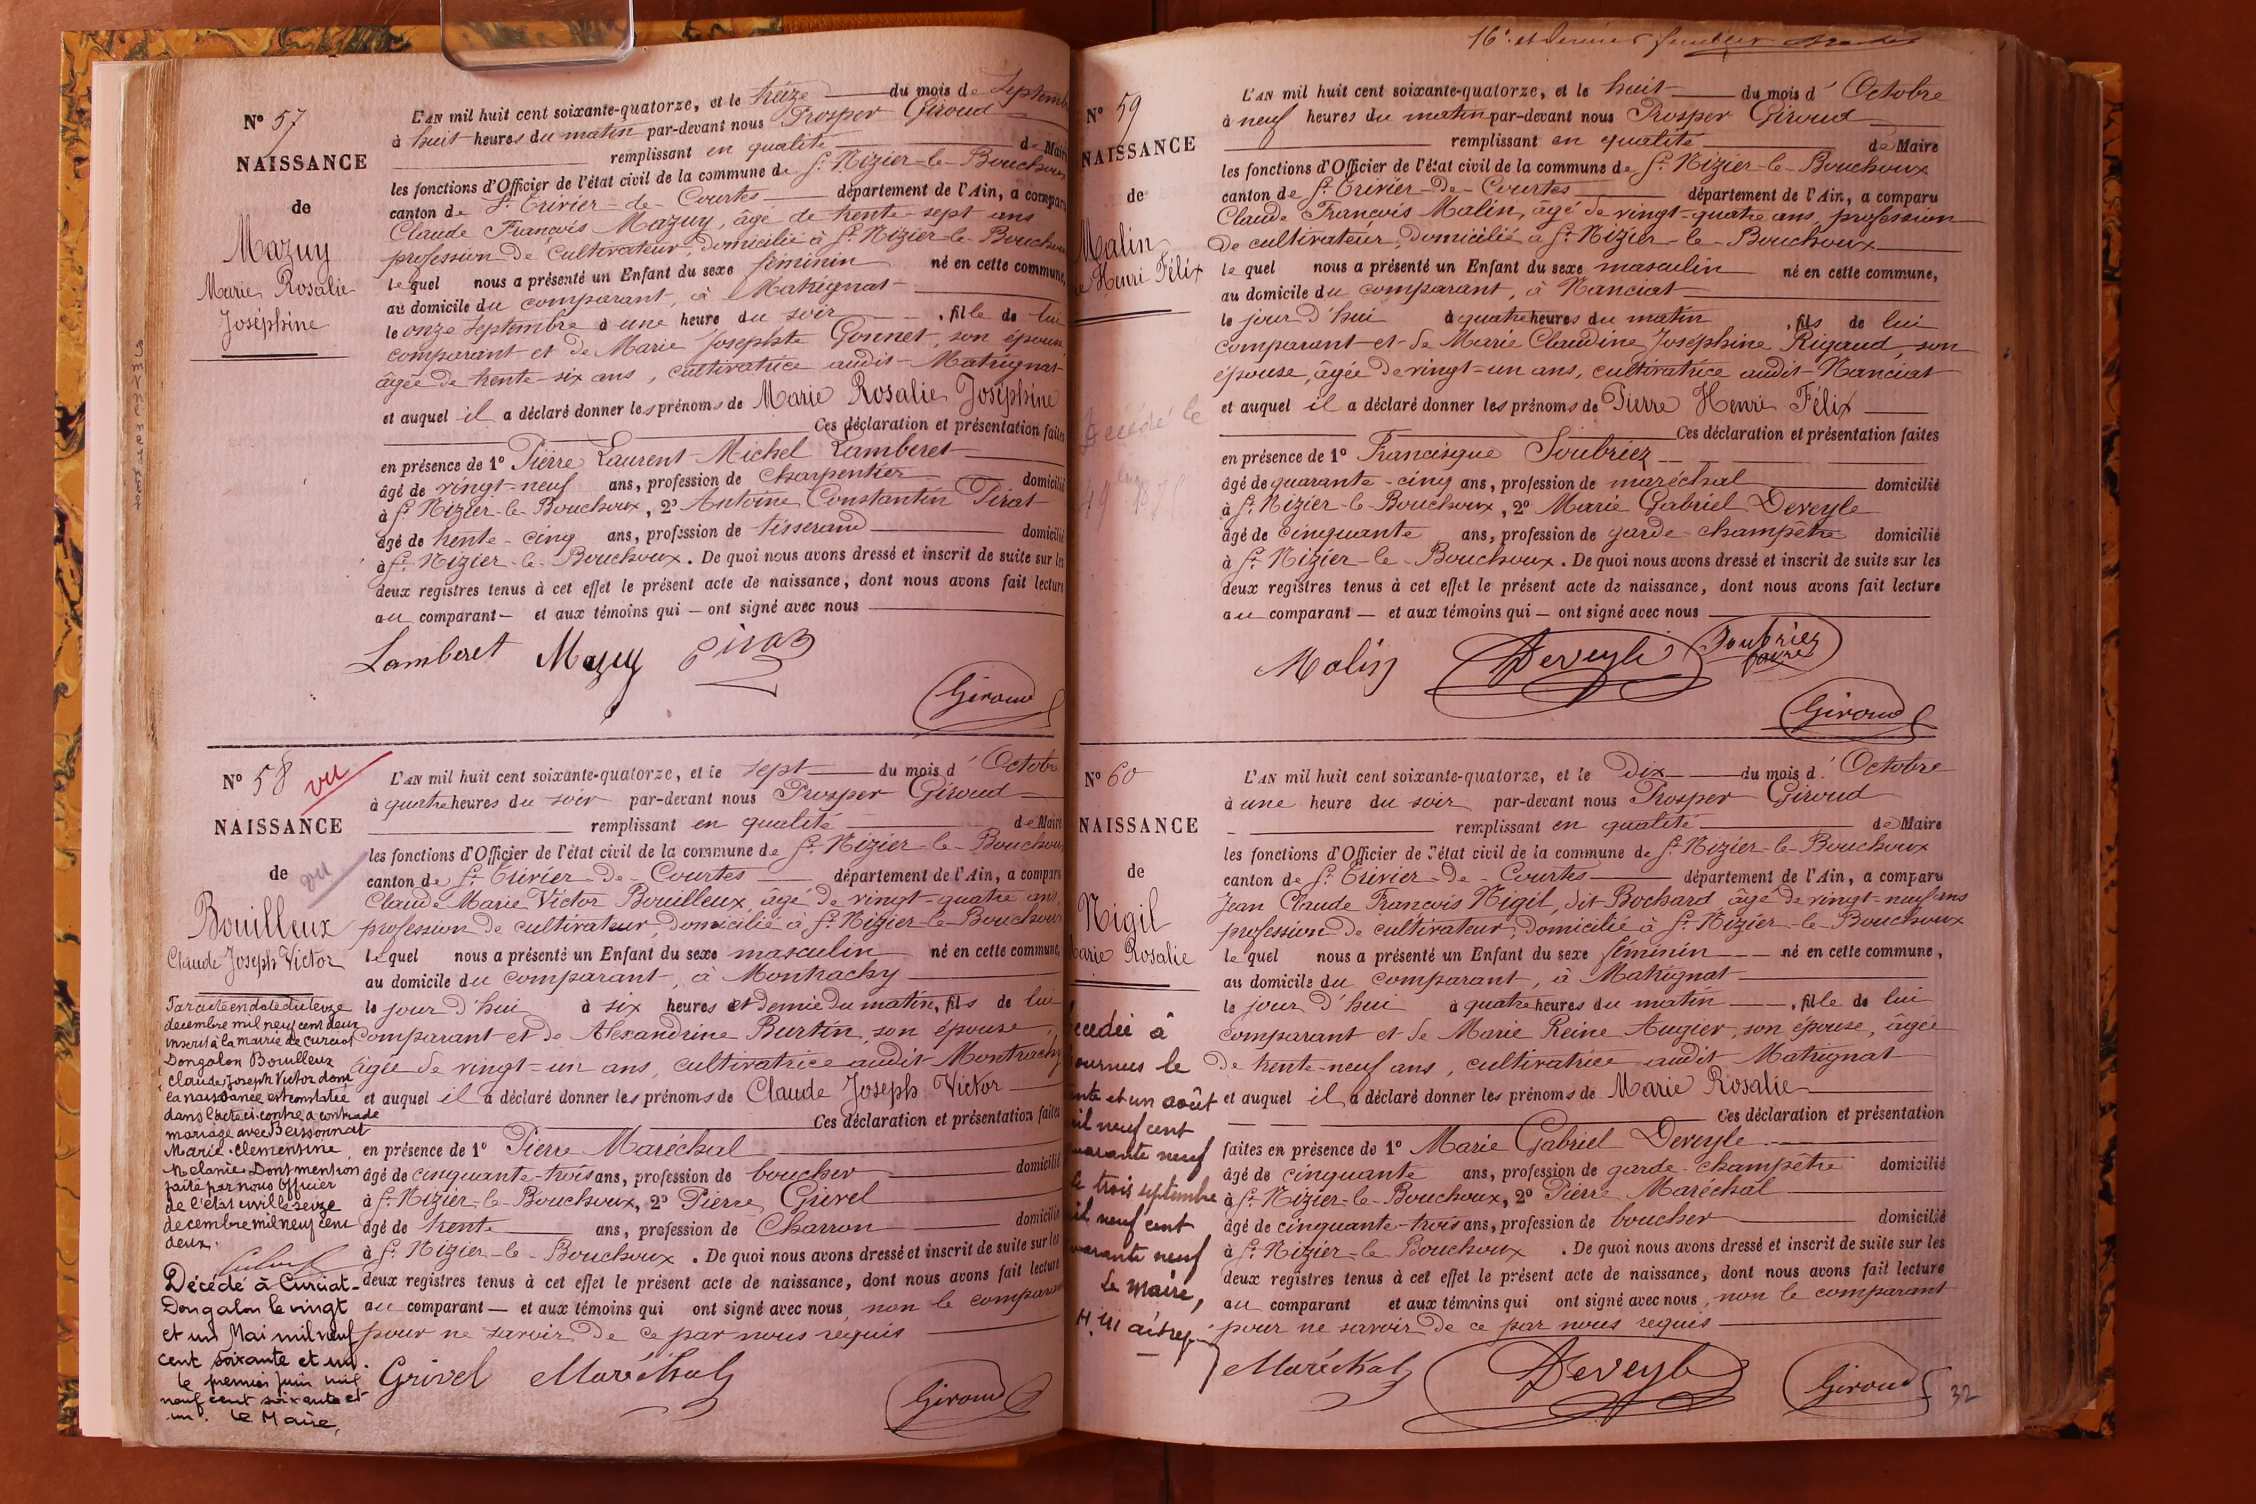 N° 57
NAISSANCE
de
Mazuy
Marie Rosalie
Joséphine
L'AN mil huit cent soixante-quatorze, et le treize du mois de Septemb
à huit heures du matin par-devant nous Prosper Giroud
remplissant en qualité de Maire
les fonctions d'Officier de l'état civil de la commune de St Nizier-le-Bouchoux
canton de St Trivier-de-Courtes département de l'Ain, a comparu
Claude François Mazuy, âgé de trente-sept ans
profession de cultivateur, domicilié à St Nizier-le-Bouchoux
lequel nous a présenté un Enfant du sexe féminin né en cette commune,
au domicile du comparant, à Matrignat
le onze Septembre à une heure du soir, fille de lui
comparant et de Marie Josephte Gonnet, son épouse
âgée de trente-six ans, cultivatrice audit Matrignat
et auquel il a déclaré donner les prénoms de Marie Rosalie Joséphine
Ces déclaration et présentation faites
en présence de 1° Pierre Laurent Michel Lamberet
âgé de vingt-neuf ans, profession de charpentier domicilié
à St Nizier-le-Bouchoux, 2° Antoine Constantin Pirat
âgé de trente-cinq ans, profession de tisserand domicilié
à St Nizier-le-Bouchoux. De quoi nous avons dressé et inscrit de suite sur les
deux registres tenus à cet effet le présent acte de naissance, dont nous avons fait lecture
au comparant et aux témoins qui ont signé avec nous
Lamberet Mazuy Pirat
Giroud
N° 58 vu
NAISSANCE
de
vu
Bouilleux
Claude Joseph Victor
Par acte en date du treize
décembre mil neuf cent deux
inscrit à la mairie de Curciat
Dongalon Bouilleux
Claude Joseph Victor dont
la naissance est constatée
dans l'acte ci-contre a contracté
mariage avec Bessonnat
Marie Clémentine
Mélanie Dont mention
faite par nous Officier
de l'état civil le seize
décembre mil neuf cent
deux.
Décédé à Curciat-
Dongalon le vingt
et un Mai mil neuf
cent soixante et un.
le premier Juin mil
neuf cent soixante et
un. Le Maire,
L'AN mil huit cent soixante-quatorze, et le sept du mois d'Octobre
à quatre heures du soir par-devant nous Prosper Giroud
remplissant en qualité de Maire
les fonctions d'Officier de l'état civil de la commune de St Nizier-le-Bouchoux
canton de St Trivier-de-Courtes département de l'Ain, a comparu
Claude Marie Victor Bouilleux, âgé de vingt-quatre ans,
profession de cultivateur, domicilié à St Nizier-le-Bouchoux
lequel nous a présenté un Enfant du sexe masculin né en cette commune,
au domicile du comparant, à Montrachy
le jour d'hui à six heures et demie du matin, fils de lui
comparant et de Alexandrine Burtin, son épouse,
âgée de vingt-un ans, cultivatrice audit Montrachy
et auquel il a déclaré donner les prénoms de Claude Joseph Victor
Ces déclaration et présentation faites
en présence de 1° Pierre Maréchal
âgé de cinquante-trois ans, profession de boucher domicilié
à St Nizier-le-Bouchoux, 2° Pierre Grivel
âgé de trente ans, profession de Charron domicilié
à St Nizier-le-Bouchoux. De quoi nous avons dressé et inscrit de suite sur les
deux registres tenus à cet effet le présent acte de naissance, dont nous avons fait lecture
au comparant et aux témoins qui ont signé avec nous non le comparant
pour ne savoir de ce par nous requis
Grivel Maréchal
Giroud
16e et dernier feuillet
N° 59
NAISSANCE
de
Malin
Henri Félix
Décédé le
L'AN mil huit cent soixante-quatorze, et le huit du mois d'Octobre
à neuf heures du matin par-devant nous Prosper Giroud
remplissant en qualité de Maire
les fonctions d'Officier de l'état civil de la commune de St Nizier-le-Bouchoux
canton de St Trivier-de-Courtes département de l'Ain, a comparu
Claude François Malin, âgé de vingt-quatre ans, profession
de cultivateur, domicilié à St Nizier-le-Bouchoux
lequel nous a présenté un Enfant du sexe masculin né en cette commune,
au domicile du comparant, à Nanciat
le jour d'hui à quatre heures du matin, fils de lui
comparant et de Marie Claudine Joséphine Rigaud, son
épouse, âgée de vingt-un ans, cultivatrice audit Nanciat
et auquel il a déclaré donner les prénoms de Pierre Henri Félix
Ces déclaration et présentation faites
en présence de 1° Francisque Soubriez
âgé de quarante-cinq ans, profession de maréchal domicilié
à St Nizier-le-Bouchoux, 2° Marie Gabriel Deveyle
âgé de cinquante ans, profession de garde-champêtre domicilié
à St Nizier-le-Bouchoux. De quoi nous avons dressé et inscrit de suite sur les
deux registres tenus à cet effet le présent acte de naissance, dont nous avons fait lecture
au comparant et aux témoins qui ont signé avec nous
Malin Deveyle Soubriez
Giroud
N° 60
NAISSANCE
de
Nigil
Marie Rosalie
écédée à
ournus le
ente et un août
il neuf cent
uarante neuf
le trois septembre
il neuf cent
uarante neuf
Le Maire,
L'AN mil huit cent soixante-quatorze, et le Dix du mois d'Octobre
à une heure du soir par-devant nous Prosper Giroud
remplissant en qualité de Maire
les fonctions d'Officier de l'état civil de la commune de St Nizier-le-Bouchoux
canton de St Trivier-de-Courtes département de l'Ain, a comparu
Jean Claude François Nigil, dit Bochard, âgé de vingt-neuf ans
profession de cultivateur, domicilié à St Nizier-le-Bouchoux
lequel nous a présenté un Enfant du sexe féminin né en cette commune,
au domicile du comparant, à Matrignat
le jour d'hui à quatre heures du matin, fille de lui
comparant et de Marie Reine Augier, son épouse, âgée
de trente-neuf ans, cultivatrice audit Matrignat
et auquel il a déclaré donner les prénoms de Marie Rosalie
Ces déclaration et présentation
faites en présence de 1° Marie Gabriel Deveyle
âgé de cinquante ans, profession de garde-champêtre domicilié
à St Nizier-le-Bouchoux, 2° Pierre Maréchal
âgé de cinquante-trois ans, profession de boucher domicilié
à St Nizier-le-Bouchoux. De quoi nous avons dressé et inscrit de suite sur les
deux registres tenus à cet effet le présent acte de naissance, dont nous avons fait lecture
au comparant et aux témoins qui ont signé avec nous, non le comparant
pour ne savoir de ce par nous requis
Maréchal Deveyle Giroud 32